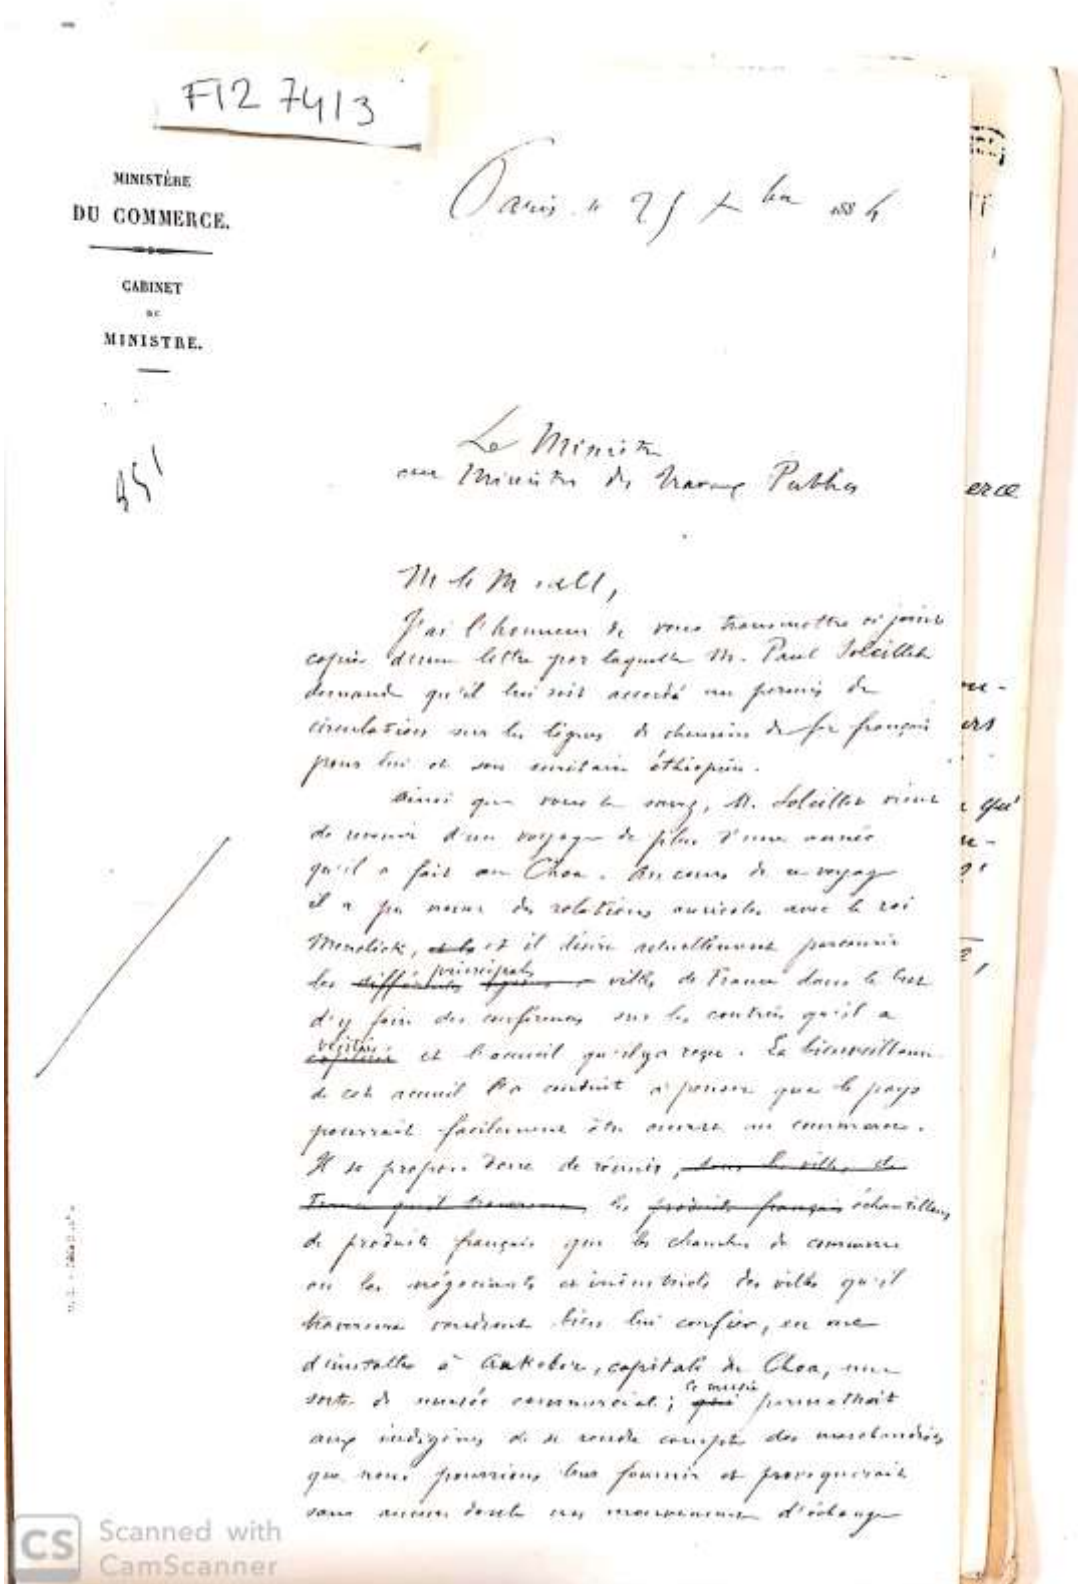 F12 7413
MINISTÈRE
DU COMMERCE.
CABINET
DU
MINISTRE.
Paris le 25 Xbre 1884
Le Ministre
au Ministre des Travaux Publics
M le M et cll,
J'ai l'honneur de vous transmettre ci joint
copie d'une lettre par laquelle M. Paul Soleillet
demande qu'il lui soit accordé un permis de
circulation sur les lignes de chemins de fer français
pour lui et son secrétaire éthiopien.
Ainsi que vous le savez, M. Soleillet vient
de revenir d'un voyage de plus d'une année
qu'il a fait au Choa. Au cours de ce voyage
il a pu nouer des relations amicales avec le roi
Menelick, et le et il désire actuellement parcourir
les différentes principales villes de France dans le but
d'y faire des conférences sur les contrées qu'il a
visitées et l'accueil qu'il y a reçu. La bienveillance
de cet accueil l'a conduit à penser que le pays
pourrait facilement être ouvert au commerce.
Il se propose donc de réunir, dans les villes de
France qu'il traversera, les produits français échantillons
de produits français que les chambres de commerce
ou les négociants et industriels des villes qu'il
traversera voudront bien lui confier, en vue
d'installer à Ankober, capitale du Choa, une
sorte de musée commercial; qui ce musée permettrait
aux indigènes de se rendre compte des marchandises
que nous pourrions leur fournir et provoquerait
sans aucun doute un mouvement d'échange
erce
ou-
ers
qu'
CS Scanned with
CamScanner